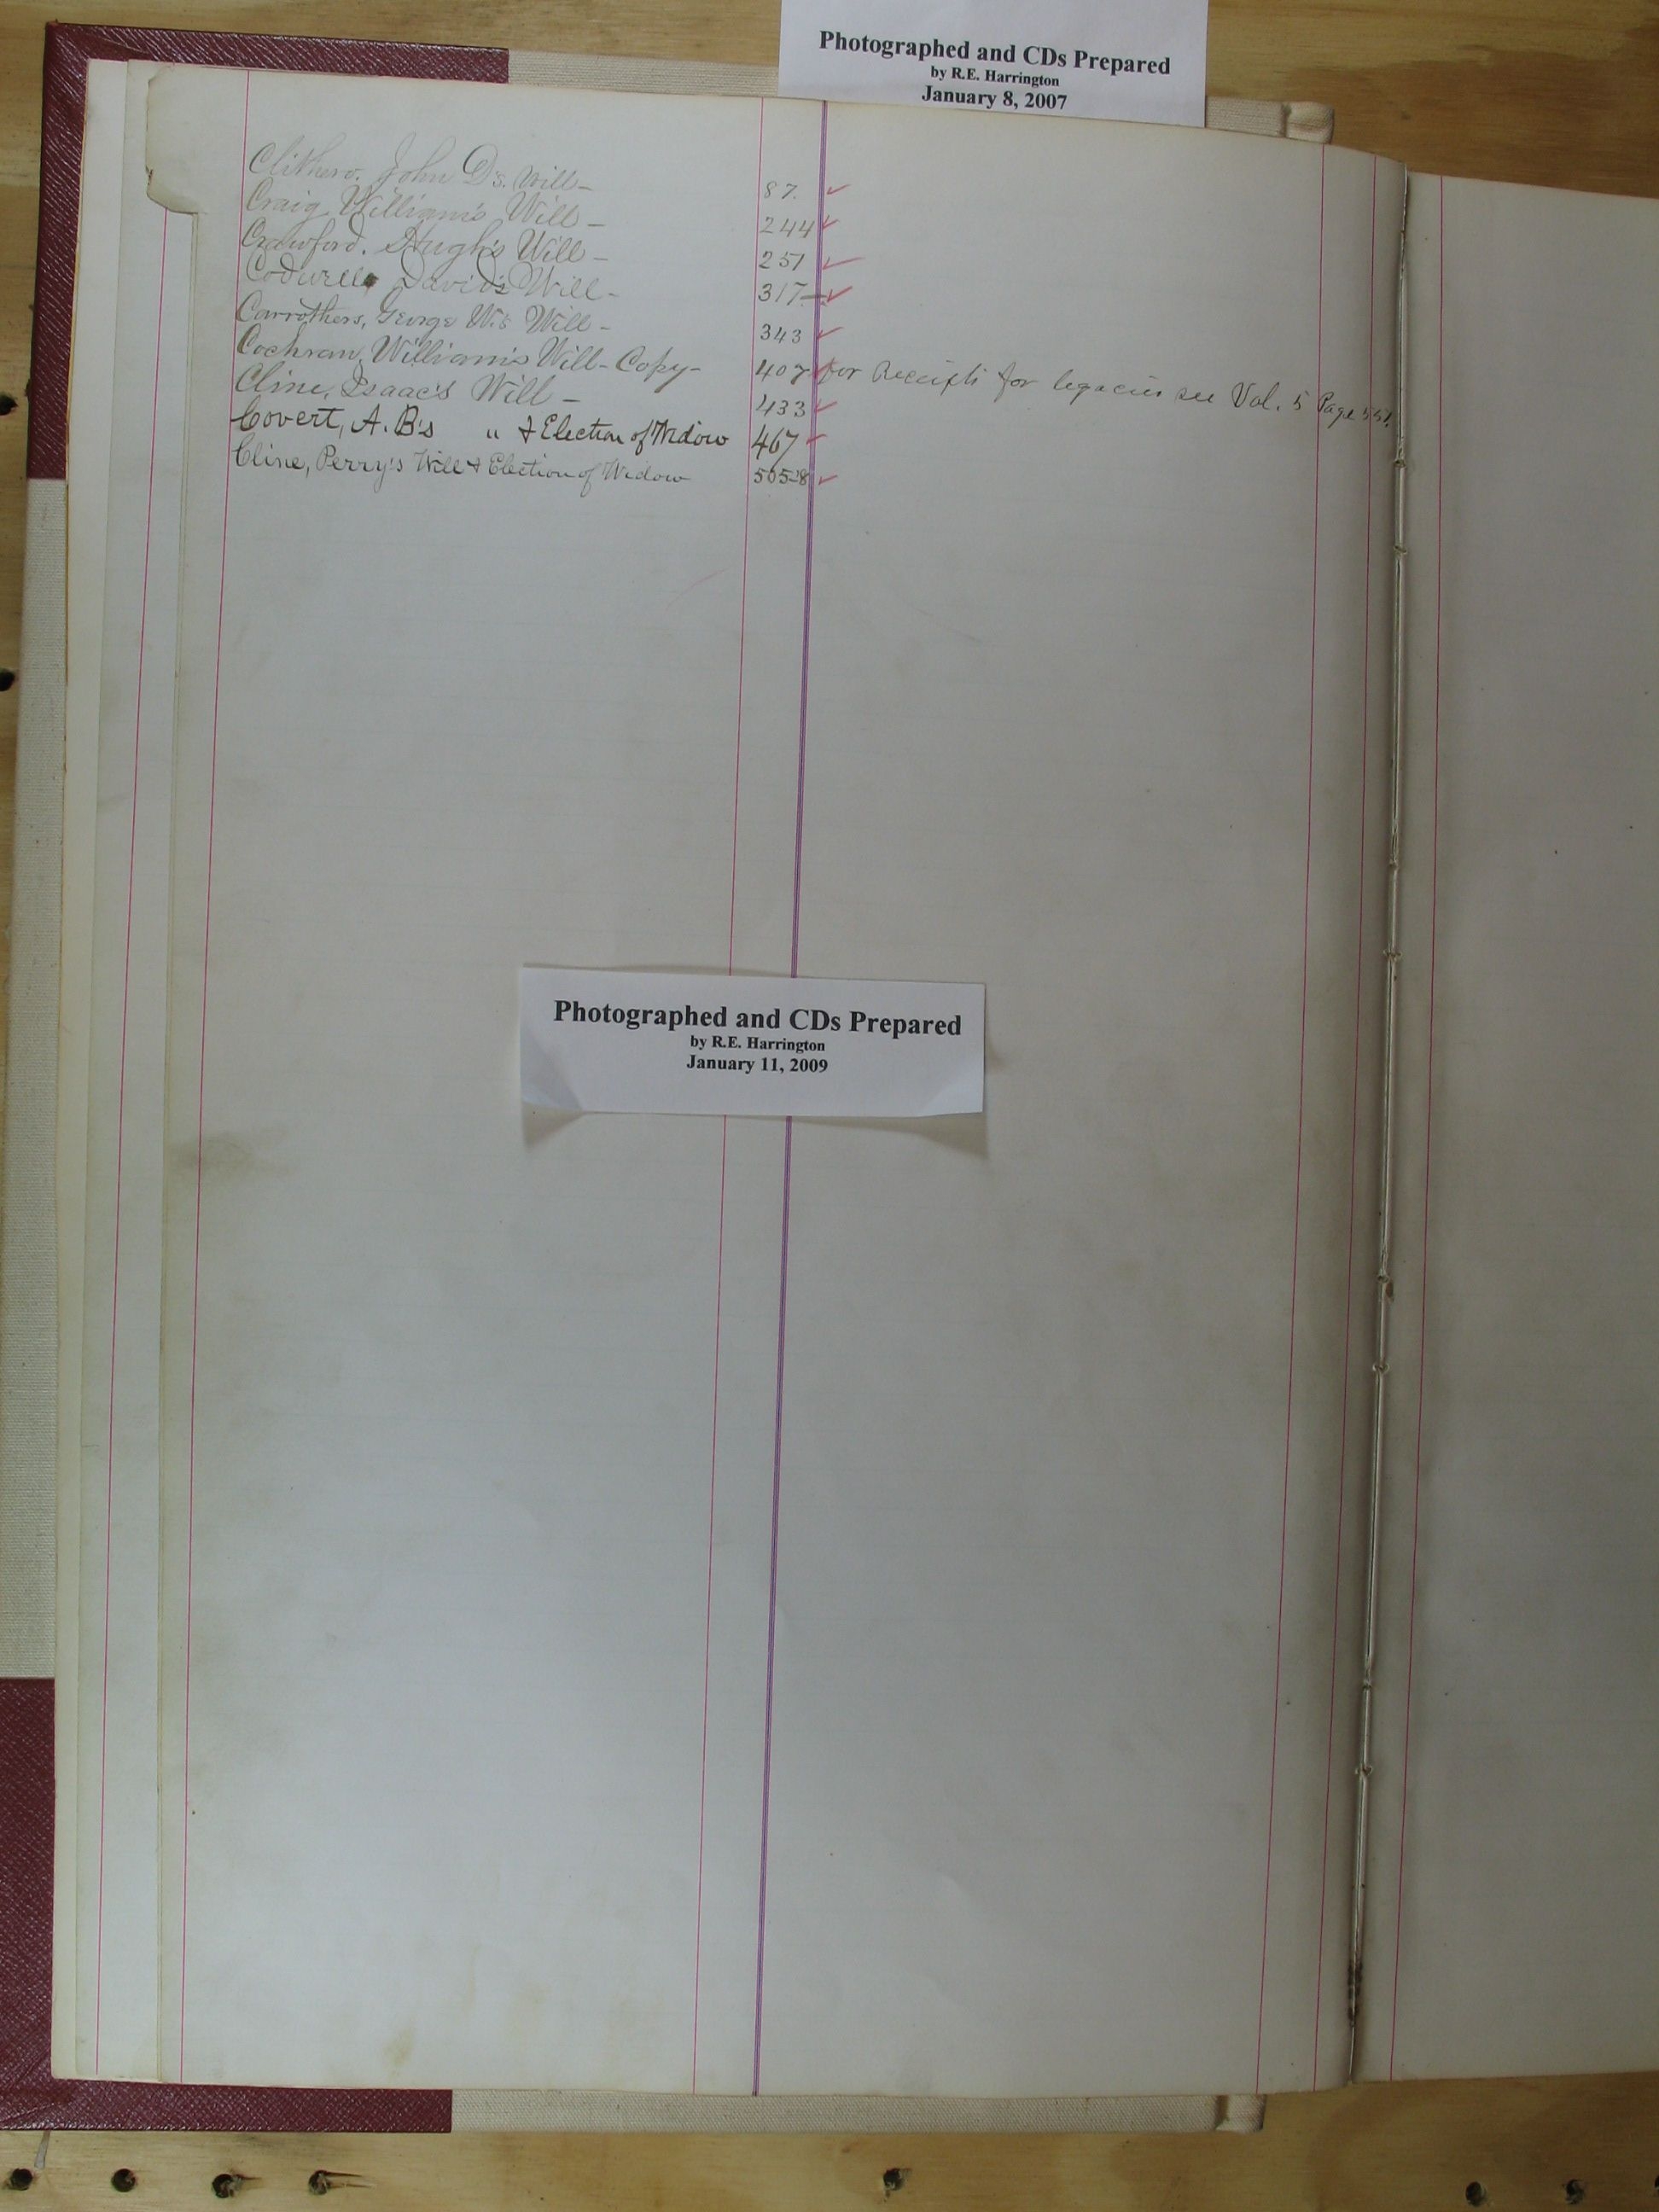 Photographed and CDs Prepared
by R.E. Harrington
January 8, 2007
Clithero. John D's. Will- 87.
Craig Williams Will - 244
Crawford. Hugh's Will - 251
David's Will - 317
Carrothers, George W.s Will - 343
Cochran, William's Will - Copy - 407 for Receipts for legacies see Vol. 5 Page
Cline, Isaac's Will - 433
Covert, A. B's " & Election of Widow 467
Cline, Perry's Will & Election of Widow 505-8
Photographed and CDs Prepared
by R.E. Harrington
January 11, 2009